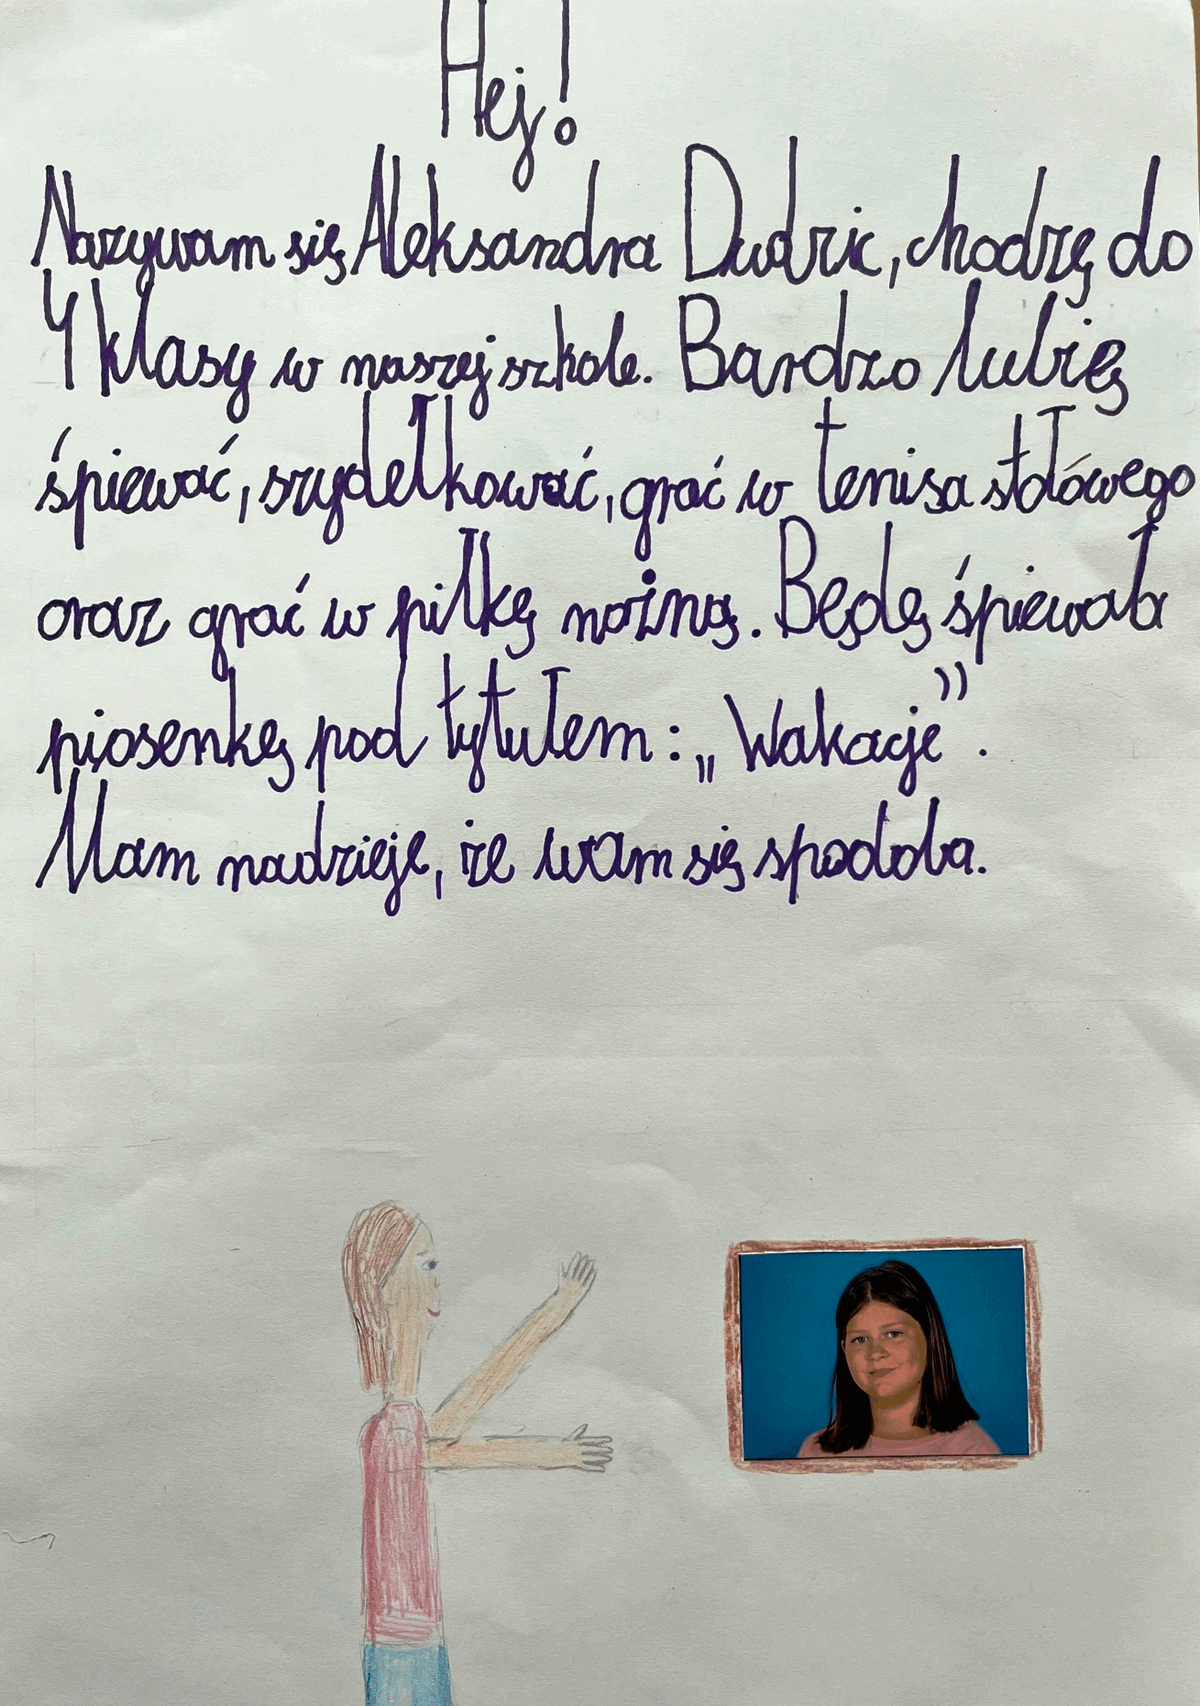 Hej!
Nazywam się Aleksandra Dudzic, chodzę do
4 klasy w naszej szkole. Bardzo lubię
śpiewać, szydełkować, grać w tenisa stołówego
oraz grać w piłkę nożną. Będę śpiewała
piosenkę pod tytułem: „Wakacje”.
Mam nadzieje, że wam się spodoba.